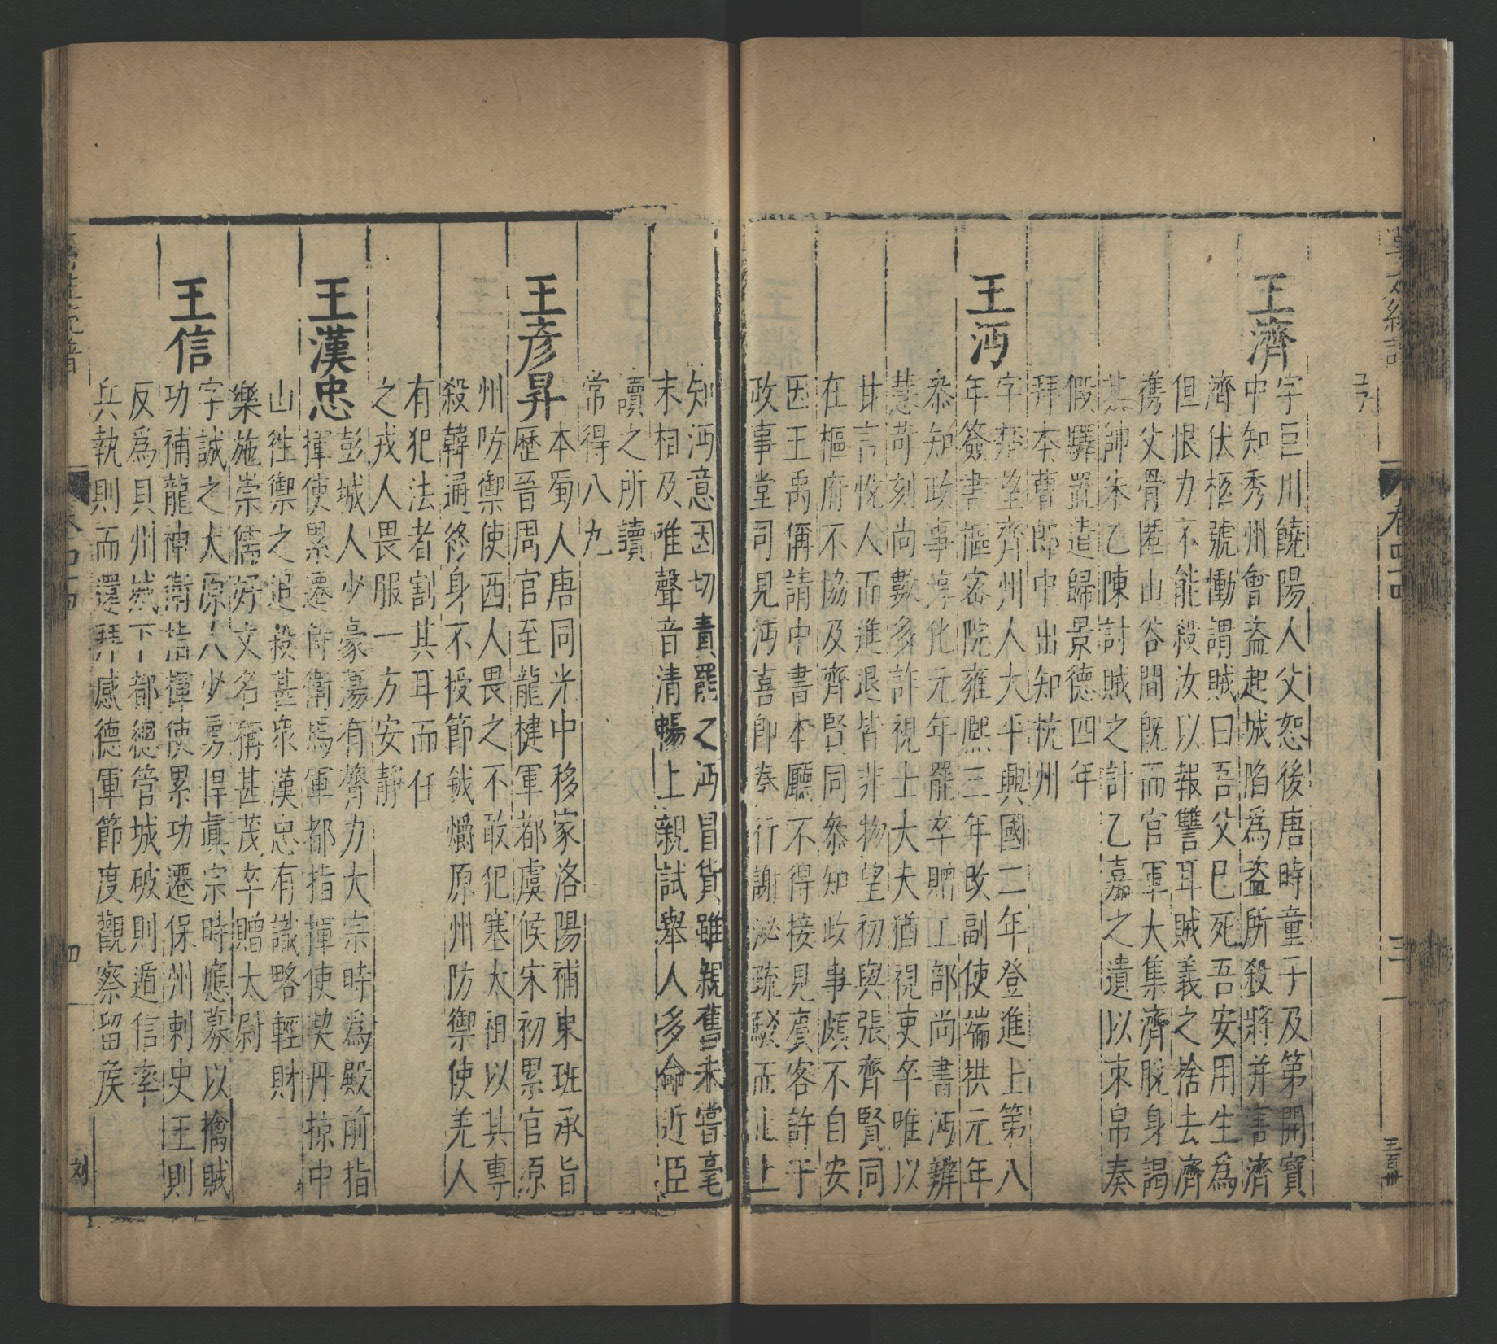 王濟
字巨川饒陽人父恕後唐時童子及第開寶
中知秀州會盜起城陷爲盜所殺將并害濟
濟伏柩號慟謂賊曰吾父已死吾安用生爲
但恨力不能殺汝以報讐耳賊義之捨去濟
携父骨匿山谷間旣而官軍大集濟脫身謁
其帥朱乙陳討賊之計乙嘉之遺以束帛奏
假驛置遣歸景德四年
拜本曹郎中出知杭州
王沔
字楚望齊州人太平興國二年登進士第八
年簽書樞密院雍熙三年改副使端拱元年
叅知政事淳化元年罷卒贈工部尚書沔辨
慧苛刻尚數多詐視士大夫猶視吏卒唯以
甘言悅人而進退皆非物望初與張齊賢同
在樞府不協及齊賢同叅知政事頗不自安
因王禹偁請中書本廳不得接見賓客許于
政事堂同見沔喜卽奏行謝泌疏駮而止上
知沔意因切責罷之沔冒貨雖親舊未嘗毫
末相及唯聲音清暢上親試舉人多命近臣
讀之所讀
常得八九
王彥昇
本蜀人唐同光中移家洛陽補東班承旨
歷晉周官至龍㨗軍都虞候宋初累官原
州防禦使西人畏之不敢犯塞太祖以其專
殺韓通終身不授節鉞爝原州防禦使羌人
有犯法者割其耳而任
之戎人畏服一方安靜
王漢忠
彭城人少豪蕩有膂力太宗時爲殿前指
揮使累遷侍衛馬軍都指揮使契丹掠中
山徃禦之追殺甚衆漢忠有識略輕財
樂施崇儒好文名稱甚茂卒贈太尉
王信
字誠之太原人少勇悍眞宗時應募以擒賊
功補龍神衛指揮使累功遷保州刺史王則
反爲貝州城下都總管城破則遁信率
兵執則而還拜感德軍節度觀察留後